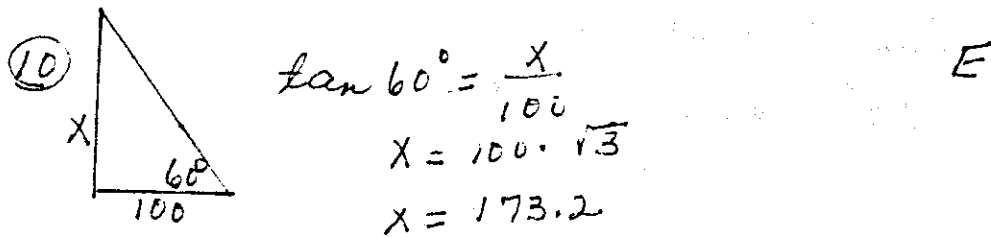 10
X
60°
100
tan 60° = X/100
X = 100 · √3
X = 173.2
E